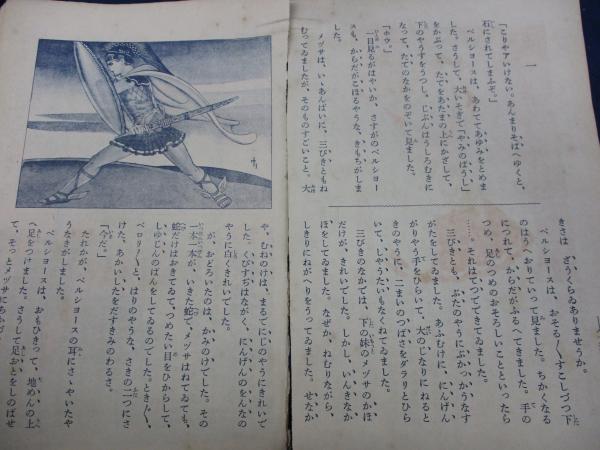 一
「こりやアいけない。あんまりそばへゆくと、
石にされてしまふぞ。」
ペルシヨースは、あわててあゆみをとめま
した。さうして、大いそぎで「やみのばうし」
をかぶつて、たてをあたまの上にかざして、
下のやうすをうつし、じぶんはうしろむきに
なつて、たてのなかをのぞいて見ました。
「ホウ。」
一目見るがはやいか、さすがのペルシヨー
スも、からだがこほるやうな、きもちがしま
した。
メヅサは、いゝあんばいに、三びきともね
むつてゐましたが、そのものすごいこと。大
きさは ざうくらゐありませうか。
ペルシヨースは、おそる〳〵すこしづつ下
のはうへおりていつて見ました。ちかくなる
につれて、からだがふるへてきました。手の
つめ、足のつめのおそろしいことといつたら
……。それはてつでできてゐました。
三びきとも、ぶたのやうにぶかつかうなす
がたをしてゐました。あふむけに、にんげん
がりやう手をひらいて、大のじなりにねると
きのやうに、二まいのつばさをダラリとひら
いて、しやうたいもなくねてゐました。
三びきのなかでは、下の妹のメヅサのかほ
だけが、きれいでした。しかし、いんきなか
ほをしてゐました。なぜか、ねむりながら、
しきりにねがへりをうつてゐました。せなか
や、むねのけは、まるでにじのやうにきれいで
した。くびすぢはながく、にんげんのをんなの
やうに白くきれいでした。
が、おどろいたのは、かみのけでした。その
一本一本が、いきた蛇で、メヅサはねてゐても、
蛇だけはおきてゐて、つめたい目をひからして、
しゆじんのばんをしてゐるのでした。とき〴〵、
ペロリ〳〵と、はりのやうな、さきの二つにさ
けた、あかいしたをだすきみのわるさ。
「今だ。」
たれかが、ペルシヨースの耳にさゝやいたや
うなきがしました。
ペルシヨースは、おもひきつて、地めんの上
へ足をつけました。さうして足おとをしのばせ
て、そつとメヅサにちかづ